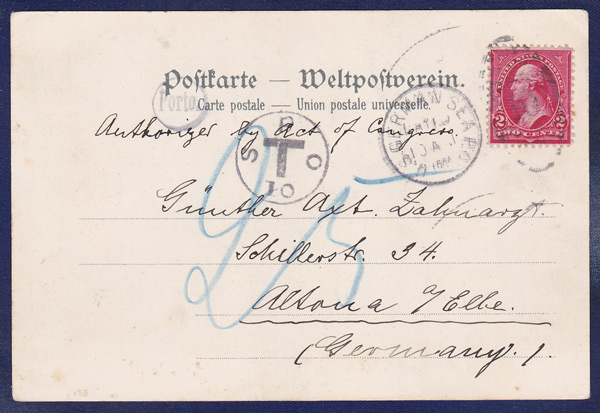 Postkarte — Weltpostverein.
Carte postale — Union postale universelle.
Porto
Authorized by Act of Congress.
S P O
T
10
GERMAN SEA P.O.
2 TWO CENTS 2
25
Günther Axt. Zahnarzt.
Schillerstr. 34.
Altona a/Elbe.
(Germany.)